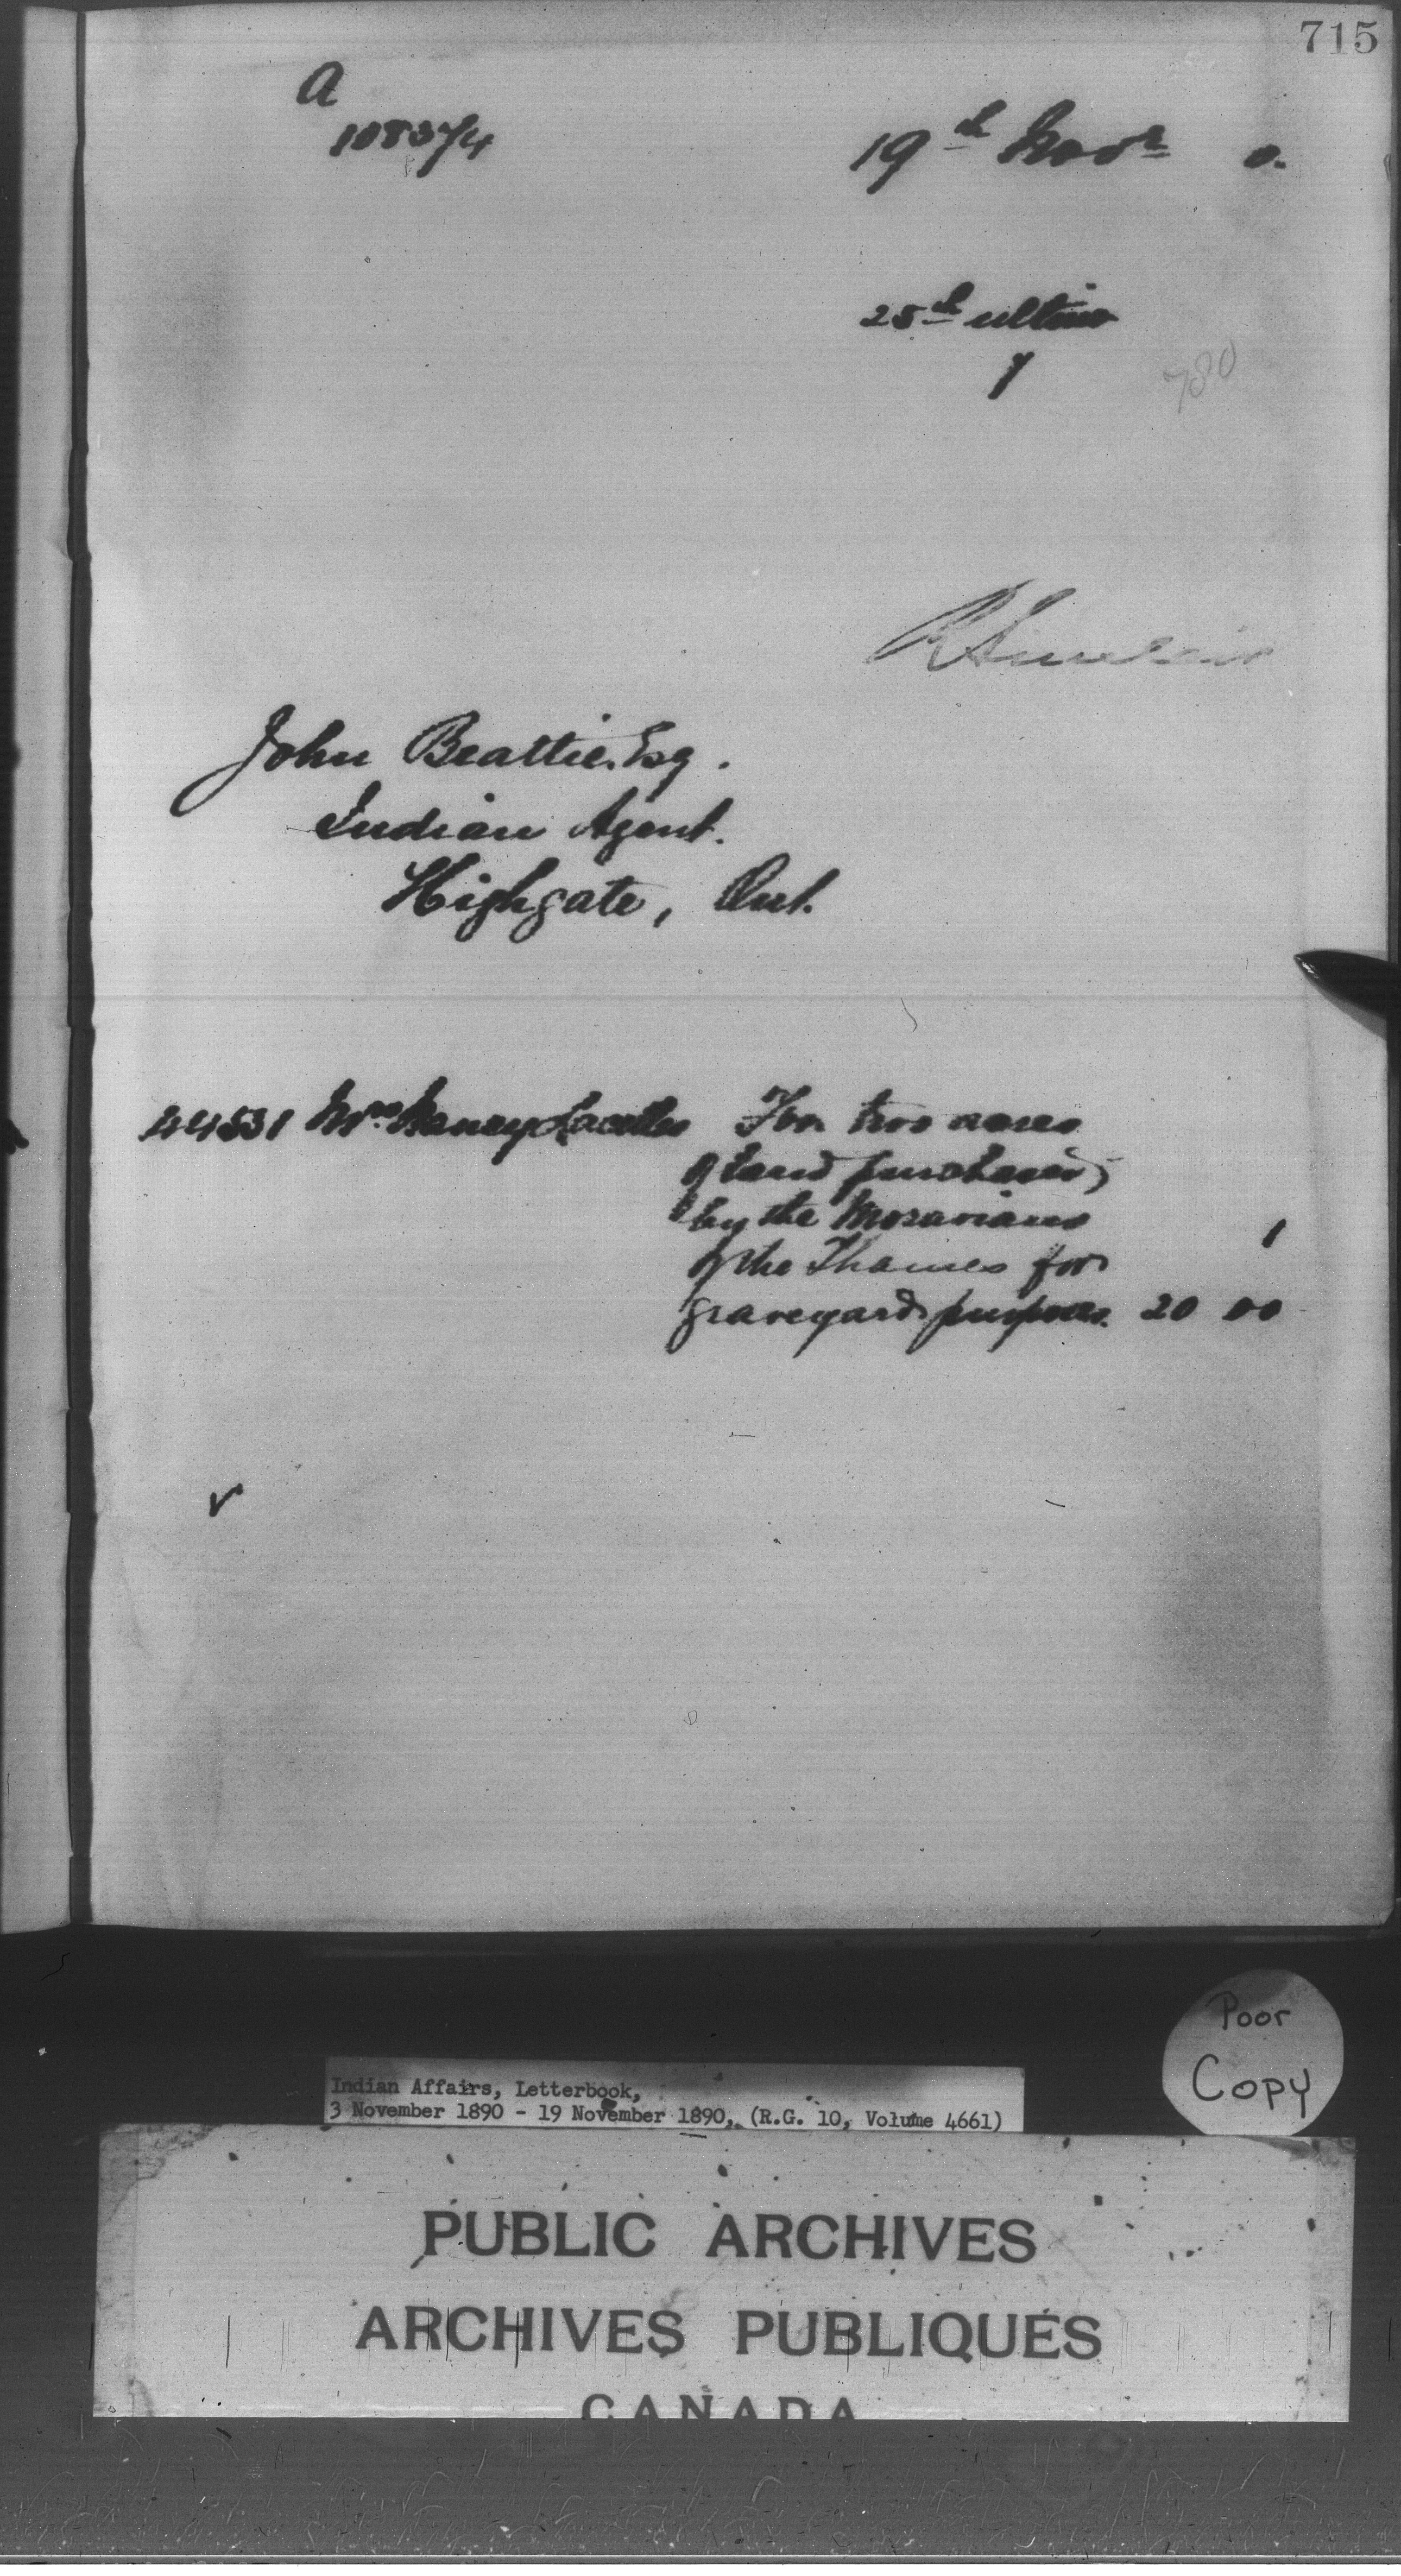 715
A
108374
19th Novr 0.
25th ultimo
1
780
R Sinclair
John Beattie, Esq.
Indian Agent.
Highgate, Ont.
44531 Mrs Nancy For two acres
of land purchased
by the Moravians
of the Thames for
graveyard purposes. 20 00
Indian Affairs, Letterbook,
3 November 1890 - 19 November 1890, (R.G. 10, Volume 4661)
Poor
Copy
PUBLIC ARCHIVES
ARCHIVES PUBLIQUES
CANADA